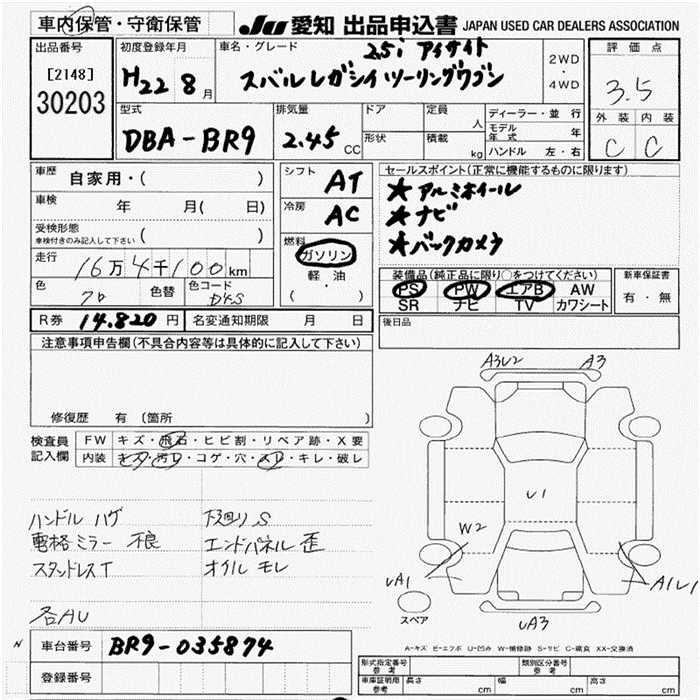 車内保管・守衛保管
JU 愛知 出品申込書 JAPAN USED CAR DEALERS ASSOCIATION
出品番号
[2148]
30203
初度登録年月
H22 8月
車名・グレード
2.5i アイサイト
スバルレガシィツーリングワゴン
2WD
・
4WD
評価点
3.5
外装 内装
C C
型式
DBA-BR9
排気量
2.45 CC
ドア
形状
定員 人
積載 kg
ディーラー・並行
モデル年式 年
ハンドル 左・右
車歴 自家用・( )
車検 年 月( 日)
受検形態
車検付きのみ記入して下さい ( )
走行 16万4千100km
色
色替
色コード
シフト AT
冷房 AC
燃料
ガソリン
軽・油
( ・ )
セールスポイント(正常に機能するものに限ります)
★アルミホイール
★ナビ
★バックカメラ
装備品(純正品に限り○をつけてください)
PS PW エアB AW
SR ナビ TV カワシート
新車保証書
有・無
R券 14.820円 名変通知期限 月 日
後日品
注意事項申告欄(不具合内容等は具体的に記入して下さい)
修復歴 有 〔箇所 〕
検査員記入欄
FW キズ・飛石・ヒビ割・リペア跡・X要
内装 キズ・汚レ・コゲ・穴・スレ・キレ・破レ
ハンドル ハゲ
電格ミラー 不良
スタッドレスT
各AU
下廻りS
エンドパネル 歪
オイル モレ
A3U2 A3
U1
W2
UA1
A1U1
UA3
スペア
A-キズ E-エクボ U-凹み W-補修跡 S-サビ C-腐食 XX-交換済
N 車台番号 BR9-035874
登録番号
型式指定番号 参考
類別区分番号 参考
車庫証明用 参考 長さ cm 幅 cm 高さ cm